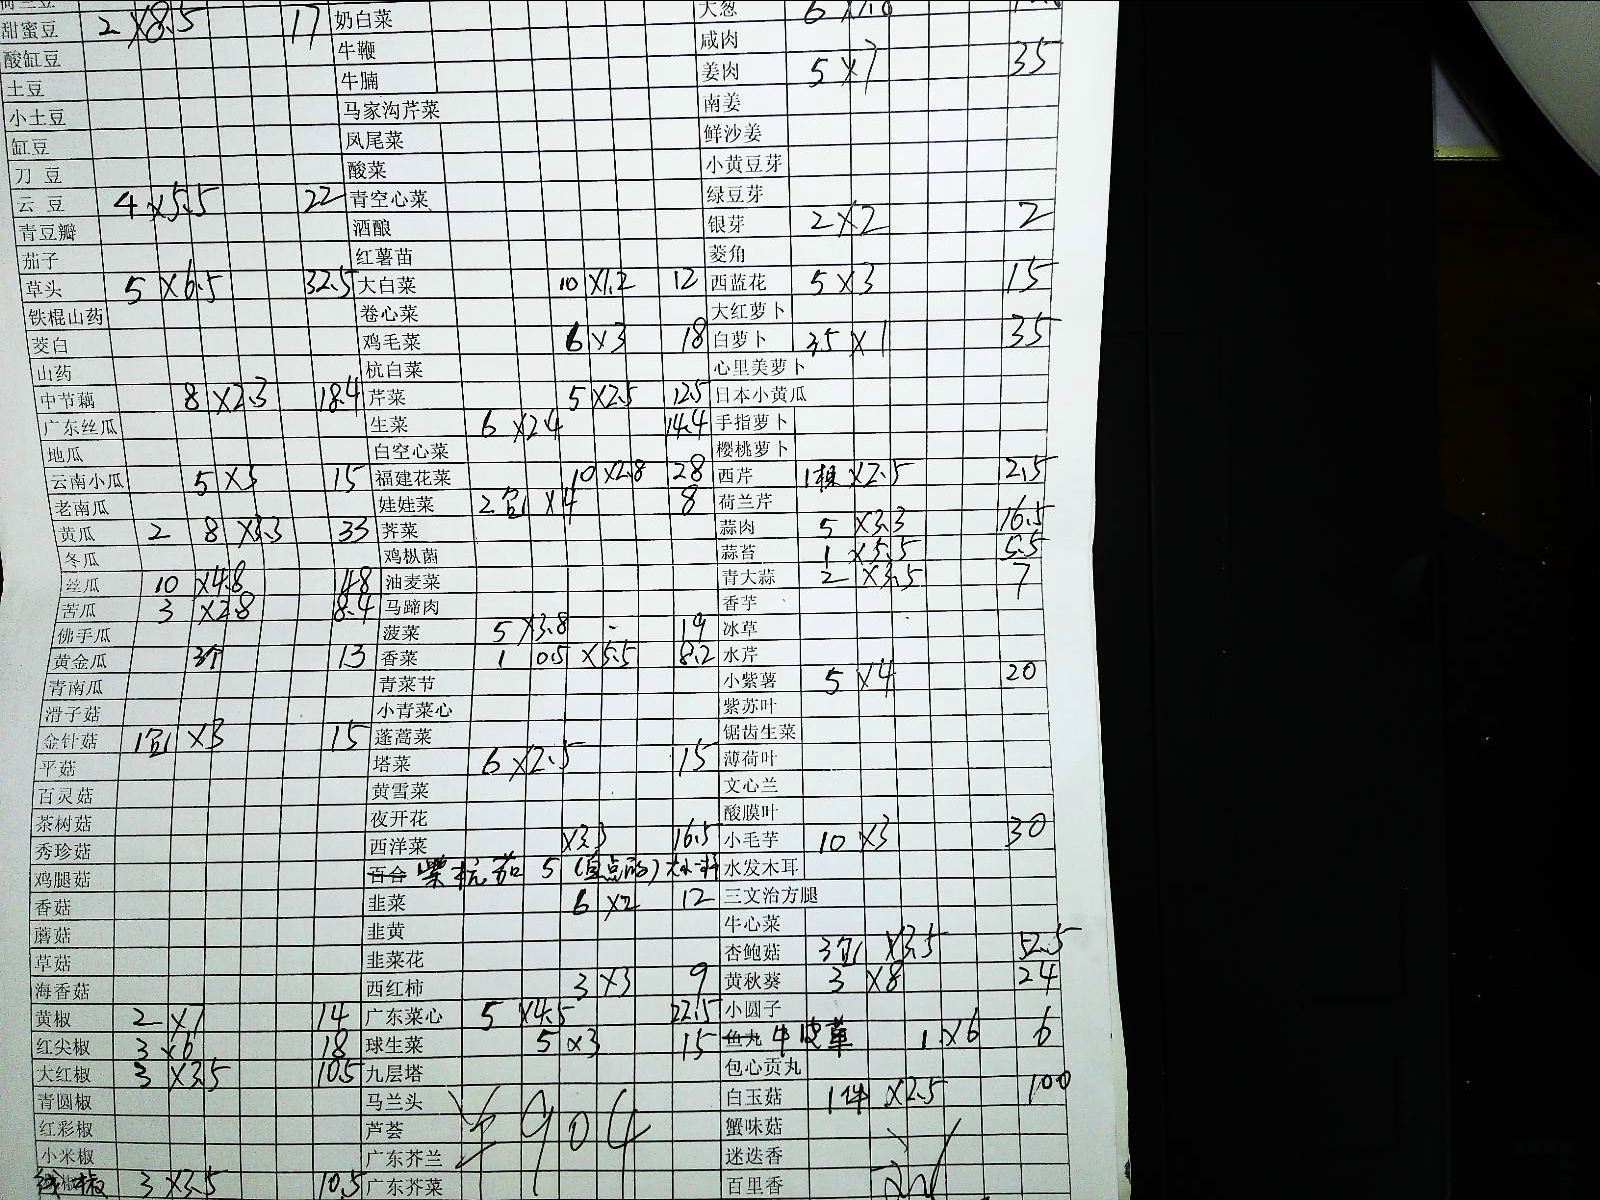 甜蜜豆 2 ×8.5 17 奶白菜
酸缸豆 牛鞭 咸肉
土豆 牛腩 姜肉 5 ×7 35
小土豆 马家沟芹菜 南姜
缸豆 凤尾菜 鲜沙姜
刀 豆 酸菜 小黄豆芽
云 豆 4 ×5.5 22 青空心菜 绿豆芽
青豆瓣 酒酿 银芽 2 ×2 2
茄子 红薯苗 菱角
草头 5 ×6.5 32.5 大白菜 10 ×1.2 12 西蓝花 5 ×3 15
铁棍山药 卷心菜 大红萝卜
茭白 鸡毛菜 6 ×3 18 白萝卜 35 ×1 35
山药 杭白菜 心里美萝卜
中节藕 8 ×2.3 18.4 芹菜 5 ×2.5 12.5 日本小黄瓜
广东丝瓜 生菜 6 ×2.4 14.4 手指萝卜
地瓜 白空心菜 樱桃萝卜
云南小瓜 5 ×3 15 福建花菜 10 ×2.8 28 西芹 1棵 ×2.5 2.5
老南瓜 娃娃菜 2包 ×4 8 荷兰芹
黄瓜 2 8 ×3.3 33 荠菜 蒜肉 5 ×3.3 16.5
冬瓜 鸡枞菌 蒜苔 1 ×5.5 5.5
丝瓜 10 ×4.8 48 油麦菜 青大蒜 2 ×3.5 7
苦瓜 3 ×2.8 8.4 马蹄肉 香芋
佛手瓜 菠菜 5 ×3.8 19 冰草
黄金瓜 3个 13 香菜 1 0.5 ×5.5 8.2 水芹
青南瓜 青菜节 小紫薯 5 ×4 20
滑子菇 小青菜心 紫苏叶
金针菇 1包 ×3 15 蓬蒿菜 锯齿生菜
平菇 塔菜 6 ×2.5 15 薄荷叶
百灵菇 黄雪菜 文心兰
茶树菇 夜开花 酸膜叶
秀珍菇 西洋菜 ×3.3 16.5 小毛芋 10 ×3 30
鸡腿菇 百合 紫杭茄 5 水发木耳
香菇 韭菜 6 ×2 12 三文治方腿
蘑菇 韭黄 牛心菜
草菇 韭菜花 杏鲍菇 3包 ×3.5 52.5
海香菇 西红柿 3 ×3 9 黄秋葵 3 ×8 24
黄椒 2 ×7 14 广东菜心 5 ×4.5 22.5 小圆子
红尖椒 3 ×6 18 球生菜 5 ×3 15 鱼丸 牛皮革 1 ×6 6
大红椒 3 ×3.5 10.5 九层塔 包心贡丸
青圆椒 马兰头 白玉菇 1件 ×2.5 100
红彩椒 芦荟 ¥904 蟹味菇
小米椒 广东芥兰 迷迭香
线椒 3 ×3.5 10.5 广东芥菜 百里香